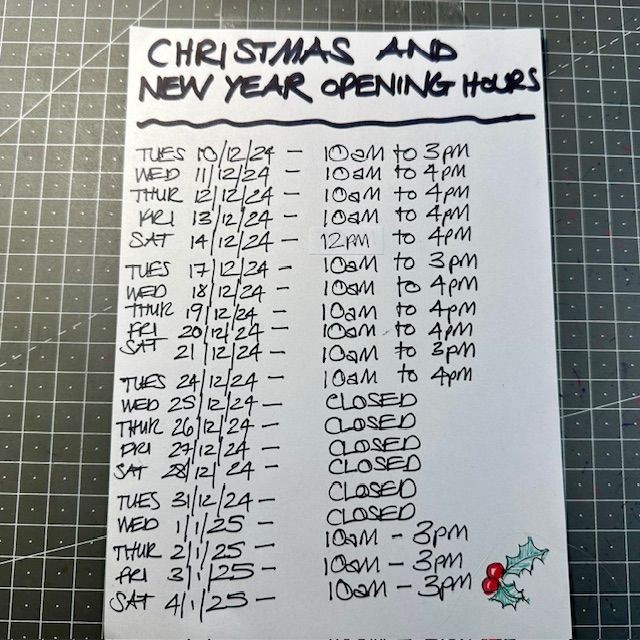 CHRISTMAS AND
NEW YEAR OPENING HOURS
TUES 10/12/24 – 10am to 3pm
WED 11/12/24 – 10am to 4pm
THUR 12/12/24 – 10am to 4pm
FRI 13/12/24 – 10am to 4pm
SAT 14/12/24 – 12pm to 4pm
TUES 17/12/24 – 10am to 3pm
WED 18/12/24 – 10am to 4pm
THUR 19/12/24 – 10am to 4pm
FRI 20/12/24 – 10am to 4pm
SAT 21/12/24 – 10am to 3pm
TUES 24/12/24 – 10am to 4pm
WED 25/12/24 – CLOSED
THUR 26/12/24 – CLOSED
FRI 27/12/24 – CLOSED
SAT 28/12/24 – CLOSED
TUES 31/12/24 – CLOSED
WED 1/1/25 – CLOSED
THUR 2/1/25 – 10am – 3pm
FRI 3/1/25 – 10am – 3pm
SAT 4/1/25 – 10am – 3pm